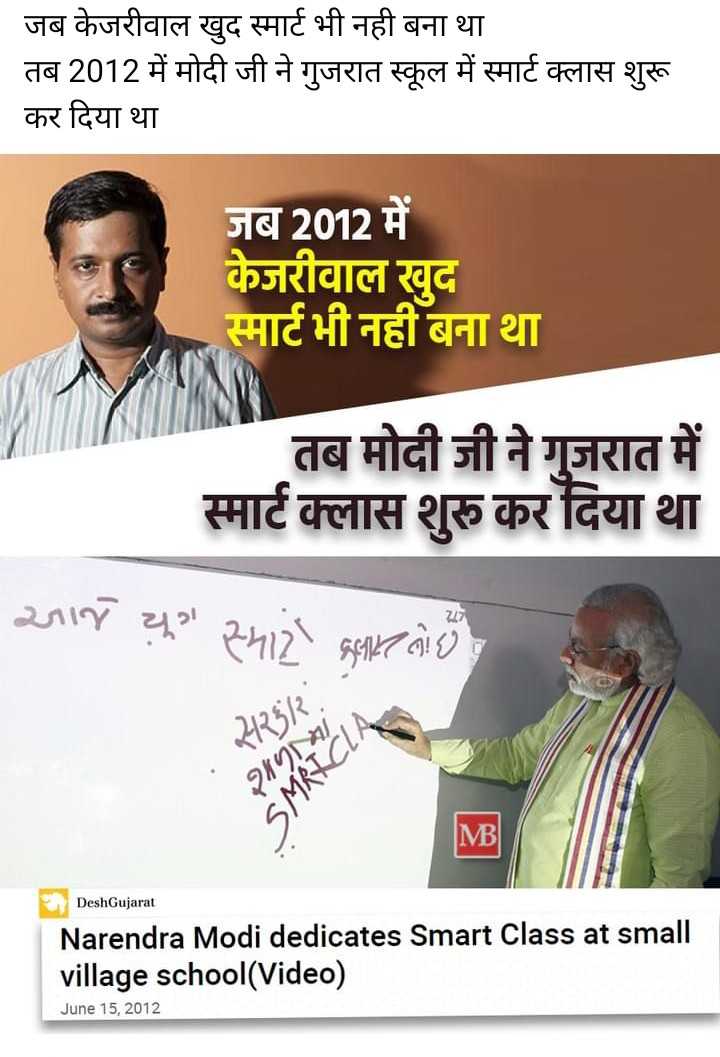 जब केजरीवाल खुद स्मार्ट भी नही बना था
तब 2012 में मोदी जी ने गुजरात स्कूल में स्मार्ट क्लास शुरू
कर दिया था
जब 2012 में
केजरीवाल खुद
स्मार्ट भी नही बना था
तब मोदी जी ने गुजरात में
स्मार्ट क्लास शुरू कर दिया था
આજ યુગ સ્માર્ટ
સરકાર
શાળામાં
SMRTCLA
MB
DeshGujarat
Narendra Modi dedicates Smart Class at small
village school(Video)
June 15, 2012